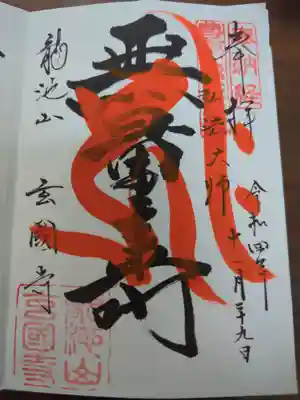 奉拝
弘法大師
令和四年
十一月二十九日
無量壽
龍池山
玄國寺